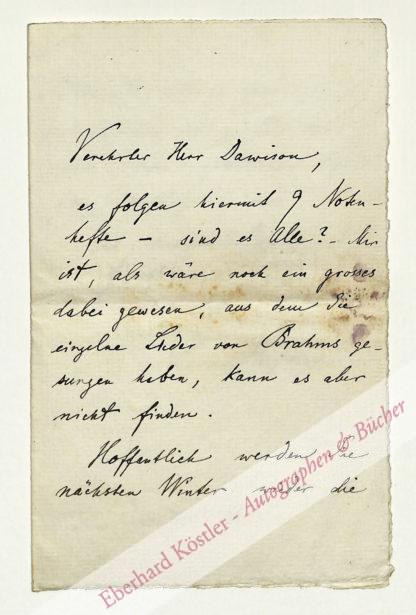 Verehrter Herr Dawison,
es folgen hiermit 9 Noten-
hefte – sind es Alle? – Mir
ist, als wäre noch ein grosses
dabei gewesen, aus dem Sie
einzelne Lieder von Brahms ge-
sungen haben, kann es aber
nicht finden.
Hoffentlich werden Sie
nächsten Winter wieder die
Eberhard Köstler - Autographen & Bücher